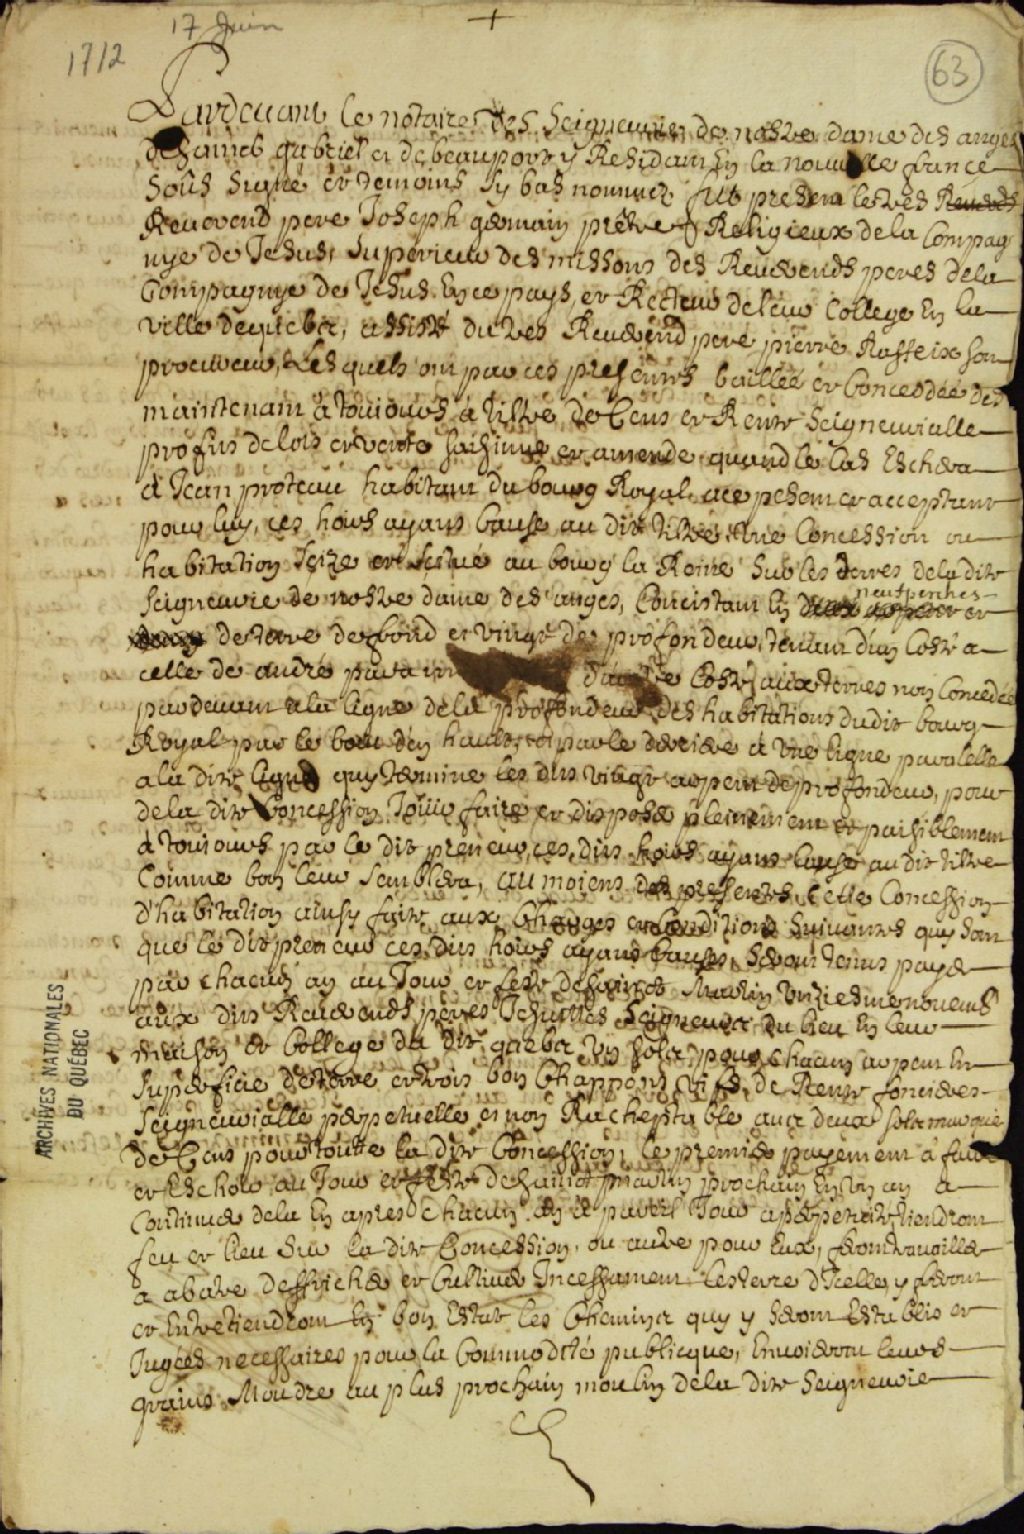 17 Juin
1712
63
Pardevant le notaire des Seigneuries de nostre dame des anges
de Saint gabriel et de beauport y Residant En la nouvelle france
Soûs Signé et temoins Sy bas nommez fut present le tres Reverend
Reuerend pere Joseph germain prêtre Religieux de la Compag
nye de Jesus, Superieur des missons des Reuerends peres de la
Compagnye de Jesus En ce pays, et Recteur de leur College En la
ville de quebec, assisté du tres Reuerend pere pierre Raffeix son
procureur, Lesquels ont par ces presentes baillée et Concedée des
maintenant a toujours a tiltre de Cens et Rente Seigneurialle
profits de lots et vente saisinne et amende quand le Cas Eschera
a Jean proteau habitant du bourg Royal, a ce present et acceptant
pour luy, ces hoirs ayans Cause au dit tiltre, vne Concession ou
habitation Seize et Scitué au bourg la Reine Sur les terres de la dite
neuf perches
Seigneurie de nostre dame des anges, Concistant En deux arpent et
de terre de frond et vingt de profondeur, tenant d'un Costé a
celle de andré parant d'autre Costé aux terres non Concedée
par devant a la ligne de la profondeur des habitations du dit bourg
Royal par le bout d'en hault, et par le deriere a vne ligne paralelle
a la dite ligne quy termine les dits vingt arpent de profondeur, pour
de la dite Concession Jouir faire et disposer pleinement et paisiblement
a toujours par le dit preneur, ces dits hoirs ayans Cause au dit tiltre
Comme bon leur Semblera, au moiens des presentes, Cette Concession
d'habitation ainsy faite aux Charges et Conditions Suivantes quy sont
que le dit preneur ces dits hoirs ayans Causes, Seront tenus payer
par chacun an au Jour et feste de Saint Martin vnziesme novembre
aux dits Reuerends peres Jesuittes Seigneur du lieu En leur
maison et College du dit quebec vn sols pour chacun arpent En
Superficie de terre et trois bons Chappons vifs de Rente fonciere
Seigneurialle perpetuelle et non Racheptable auec deux sols marqué
de Cens pour toutte la dite Concession, le premier payement a faire
et Eschoir au Jour et feste de Saint martin prochain En vn an a
Continuer de la En apres Chacun an a pareil Jour a perpetuité, tiendront
feu et lieu Sur la dite Concession, ou autre pour Eux, feront travailler
a abatre deffricher et Cultiuer Incessament les terre d'Icelle, y feront
et Entretiendront En bon Estat les Chemins quy y Seront Establis et
Jugées necessaires pour la Commodité publicque, Envoieront leurs
grains Moudre au plus prochain moulin de la dite Seigneurie
ARCHIVES NATIONALES
DU QUÉBEC